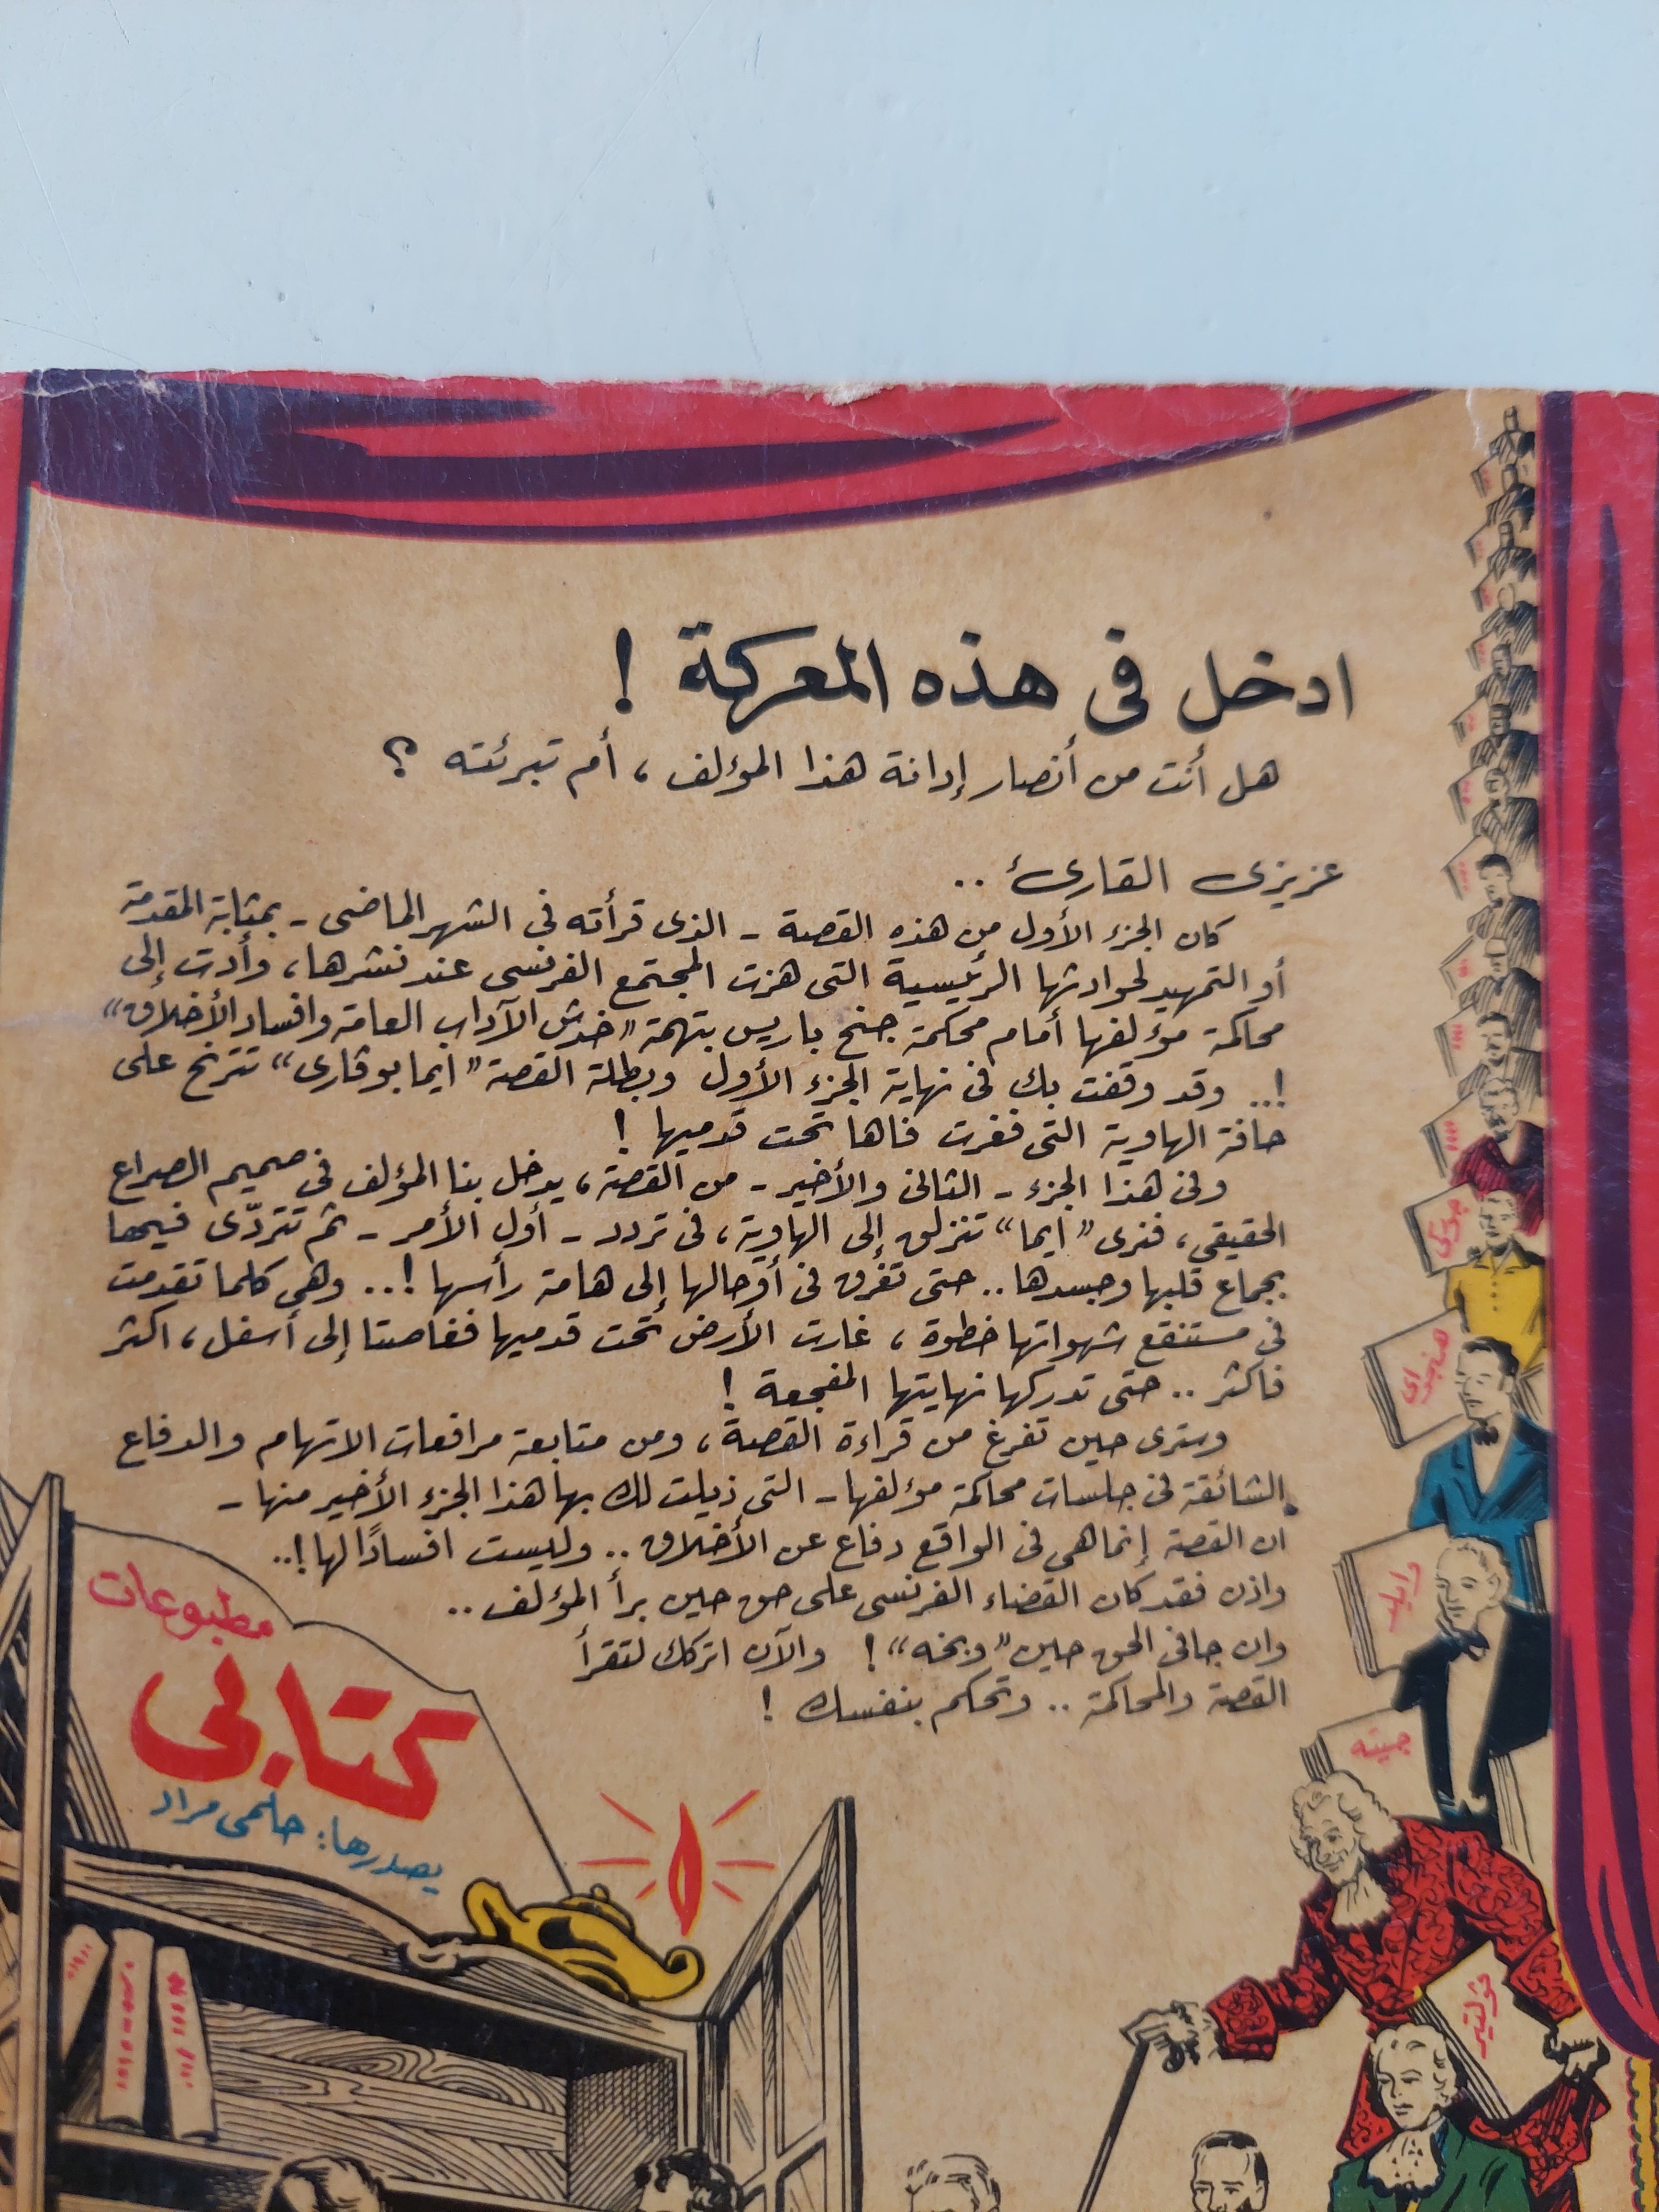 ادخل فى هذه المعركة !
هل أنت من أنصار إدانة هذا المؤلف ، أم تبرئته ؟
عزيزى القارئ ..
كان الجزء الأول من هذه القصة - الذى قرأته فى الشهر الماضى - بمثابة المقدمة
أو التمهيد لحوادثها الرئيسية التى هزت المجتمع الفرنسى عند نشرها ، وأدت إلى
محاكمة مؤلفها أمام محكمة جنح باريس بتهمة "خدش الآداب العامة وافساد الأخلاق"
!.. وقد وقفت بك فى نهاية الجزء الأول وبطلة القصة "ايما بوڤارى" تترنح على
حافة الهاوية التى فغرت فاها تحت قدميها !
وفى هذا الجزء - الثانى والأخير - من القصة ، يدخل بنا المؤلف فى صميم الصراع
الحقيقى ، فنرى "ايما" تنزلق إلى الهاوية ، فى تردد - أول الأمر - ثم تتردّى فيها
بجماع قلبها وجسدها .. حتى تغرق فى أوحالها إلى هامة رأسها !.. وهى كلما تقدمت
فى مستنقع شهواتها خطوة ، غارت الأرض تحت قدميها فغاصتا إلى أسفل ، اكثر
فاكثر .. حتى تدركها نهايتها المفجعة !
وسترى حين تفرغ من قراءة القصة ، ومن متابعة مرافعات الاتهام والدفاع
الشائقة فى جلسات محاكمة مؤلفها - التى ذيلت لك بها هذا الجزء الأخير منها -
ان القصة إنما هى فى الواقع دفاع عن الأخلاق .. وليست افسادًا لها !..
واذن فقد كان القضاء الفرنسى على حق حين برأ المؤلف ..
وان جافى الحق حين "وبخه" ! والآن اتركك لتقرأ
القصة والمحاكمة .. وتحكم بنفسك !
مطبوعات
كتابى
يصدرها : حلمى مراد
وايلد
جيته
ڤولتير